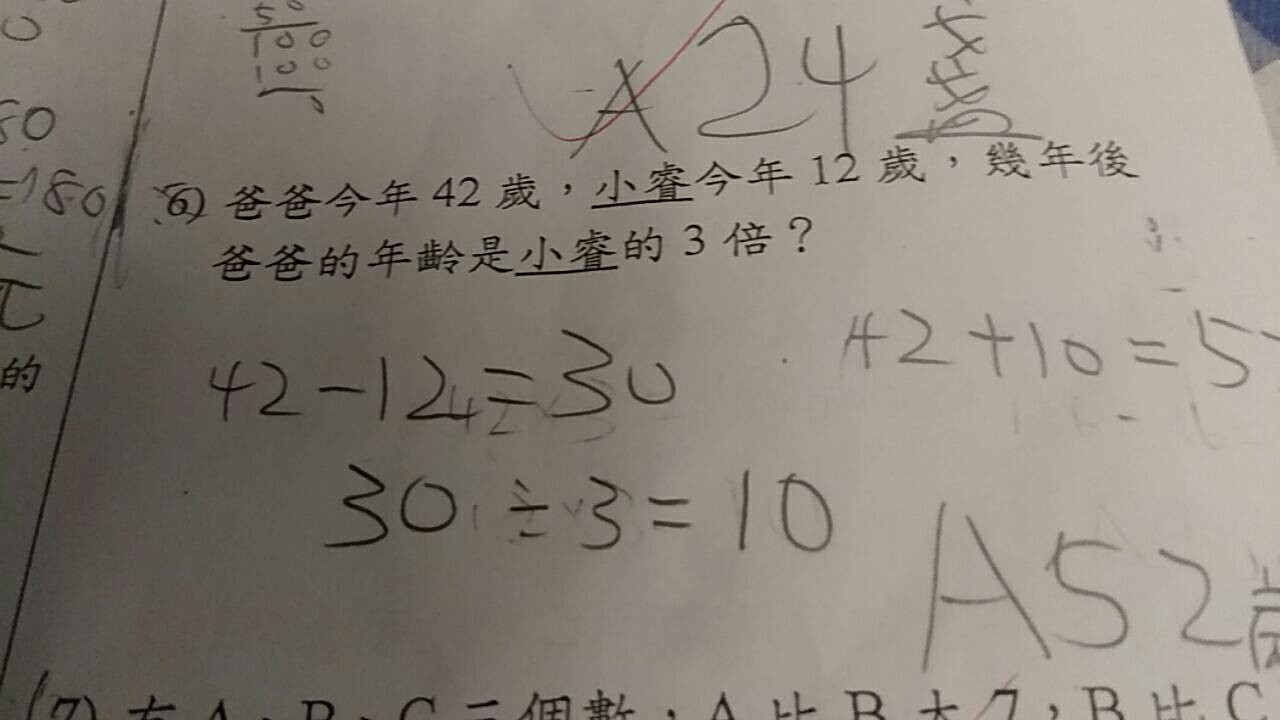 0
50
100
100
0
A 24
50
=180
(6) 爸爸今年 42 歲，小睿今年 12 歲，幾年後
爸爸的年齡是小睿的 3 倍？
42-12=30
42+10=5
的
30÷3=10
A 52歲
(7) 有 A、B、C 三個數，A 比 B 大 7，B 比 C